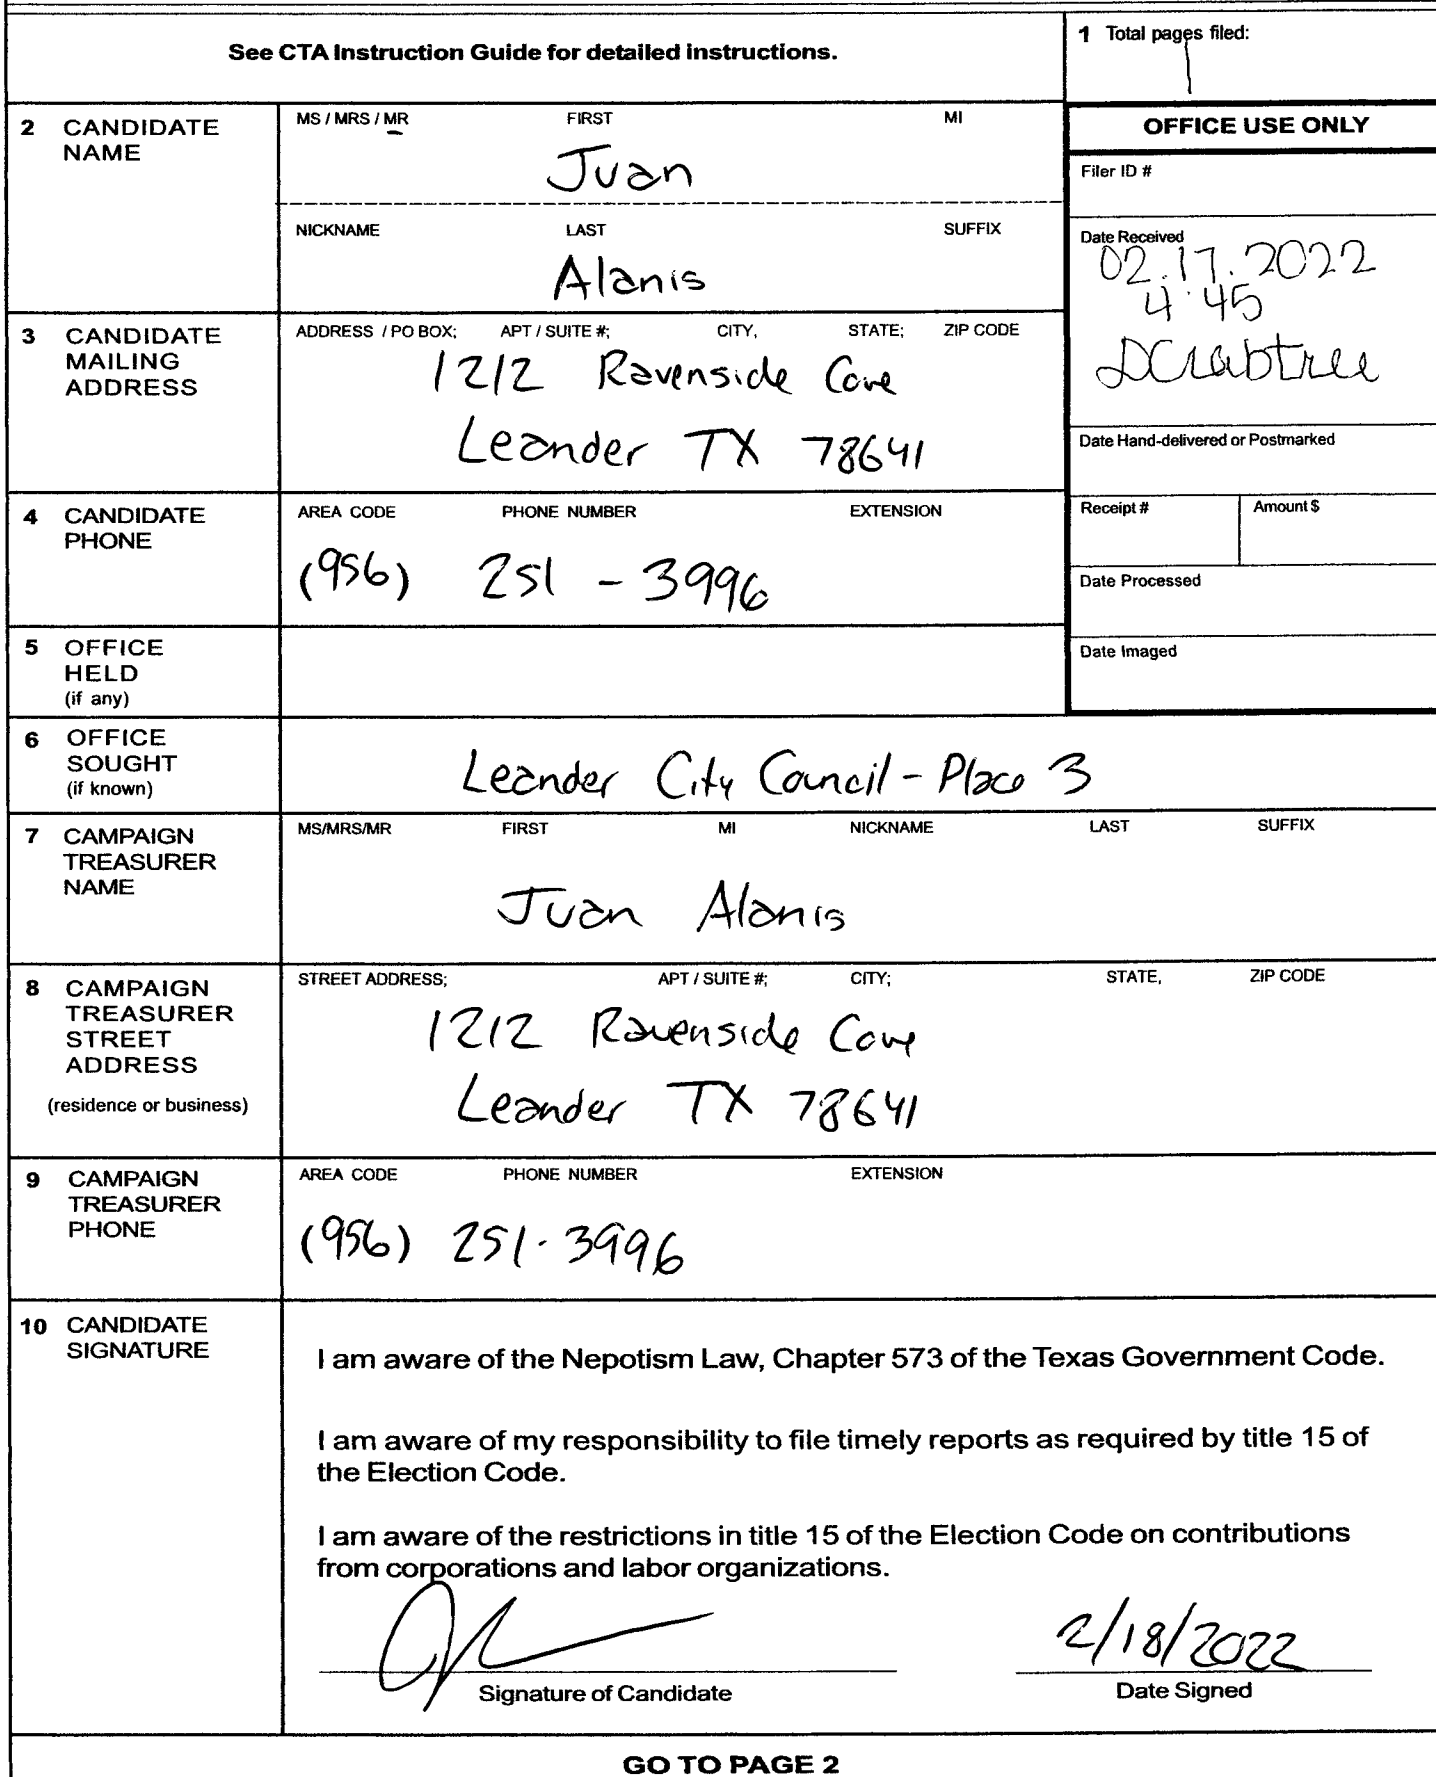 See CTA Instruction Guide for detailed instructions.
1 Total pages filed:
1
2 CANDIDATE NAME
MS / MRS / MR FIRST MI
Juan
NICKNAME LAST SUFFIX
Alanis
OFFICE USE ONLY
Filer ID #
Date Received
02.17.2022
4:45
DCrabtree
Date Hand-delivered or Postmarked
Receipt # Amount $
Date Processed
Date Imaged
3 CANDIDATE MAILING ADDRESS
ADDRESS / PO BOX; APT / SUITE #; CITY, STATE; ZIP CODE
1212 Ravenside Cove
Leander TX 78641
4 CANDIDATE PHONE
AREA CODE PHONE NUMBER EXTENSION
(956) 251 - 3996
5 OFFICE HELD
(if any)
6 OFFICE SOUGHT
(if known)
Leander City Council - Place 3
7 CAMPAIGN TREASURER NAME
MS/MRS/MR FIRST MI NICKNAME LAST SUFFIX
Juan Alanis
8 CAMPAIGN TREASURER STREET ADDRESS
(residence or business)
STREET ADDRESS; APT / SUITE #; CITY; STATE, ZIP CODE
1212 Ravenside Cove
Leander TX 78641
9 CAMPAIGN TREASURER PHONE
AREA CODE PHONE NUMBER EXTENSION
(956) 251-3996
10 CANDIDATE SIGNATURE
I am aware of the Nepotism Law, Chapter 573 of the Texas Government Code.
I am aware of my responsibility to file timely reports as required by title 15 of
the Election Code.
I am aware of the restrictions in title 15 of the Election Code on contributions
from corporations and labor organizations.
2/18/2022
Signature of Candidate Date Signed
GO TO PAGE 2